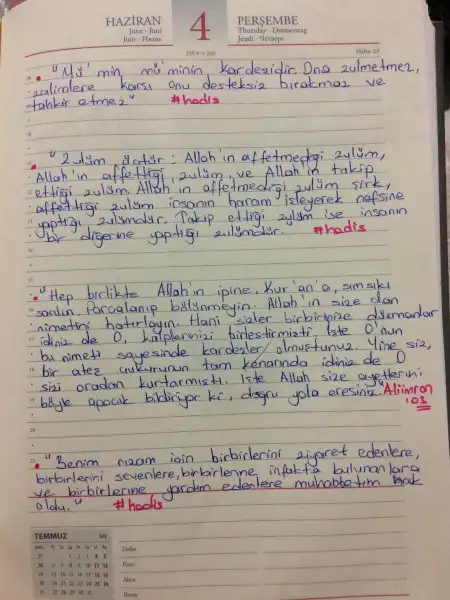 HAZİRAN
June - Juni
Juin - Июнь
4
PERŞEMBE
Thursday - Donnerstag
Jeudi - Четверг
Hafta: 23
"Mü'min mü'minin kardeşidir. Ona zulmetmez,
zalimlere karşı onu desteksiz bırakmaz ve
tahkir etmez" #hadis
"Zulüm üçtür: Allah'ın affetmediği zulüm,
Allah'ın affettiği zulüm, ve Allah'ın takip
ettiği zulüm, Allah'ın affetmediği zulüm şirk,
affettiği zulüm insanın haram işleyerek nefsine
yaptığı zulümdür. Takip ettiği zulüm ise insanın
bir diğerine yaptığı zulümdür. #hadis
"Hep birlikte Allah'ın ipine, Kur'an'a, sımsıkı
sarılın. Parçalanıp bölünmeyin. Allah'ın size olan
nimetini hatırlayın. Hani sizler birbirinize düşmanlar
idiniz de O, kalplerinizi birleştirmişti. İşte O'nun
bu nimeti sayesinde kardeşler olmuştunuz. Yine siz,
bir ateş çukurunun tam kenarında idiniz de O
sizi oradan kurtarmıştı. İşte Allah size ayetlerini
böyle apaçık bildiriyor ki, doğru yola eresiniz" Aliimran
103
"Benim rızam için birbirlerini ziyaret edenlere,
birbirlerini sevenlere, birbirlerine infakta bulunanlara
ve birbirlerine yardım edenlere muhabbetim hak
oldu." #hadis
TEMMUZ
Doğu
Batı